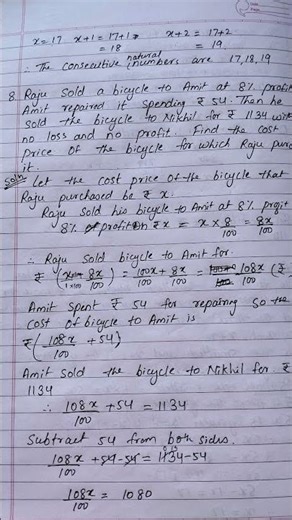 x=17 x+1 = 17+1 x+2 = 17+2
= 18 = 19
∴ The consecutive natural numbers are 17,18,19
8. Raju sold a bicycle to Amit at 8% profit
Amit repaired it spending ₹ 54. Then he
sold the bicycle to Nikhil for ₹ 1134 with
no loss and no profit. Find the cost
price of the bicycle for which Raju purc
it.
Soln Let the cost price of the bicycle that
Raju purchased be ₹ x.
Raju sold his bicycle to Amit at 8% profit
8% of profit on ₹ x = x × 8/100 = 8x/100
∴ Raju sold bicycle to Amit for
₹ (x/1×100 + 8x/100) = 100x/100 + 8x/100 = 108x/100 (₹
Amit spent ₹ 54 for repairing so the
cost of bicycle to Amit is
₹(108x/100 + 54)
Amit sold the bicycle to Nikhil for ₹
1134
∴ 108x/100 + 54 = 1134
Subtract 54 from both sides.
108x/100 + 54 - 54 = 1134 - 54
108x/100 = 1080